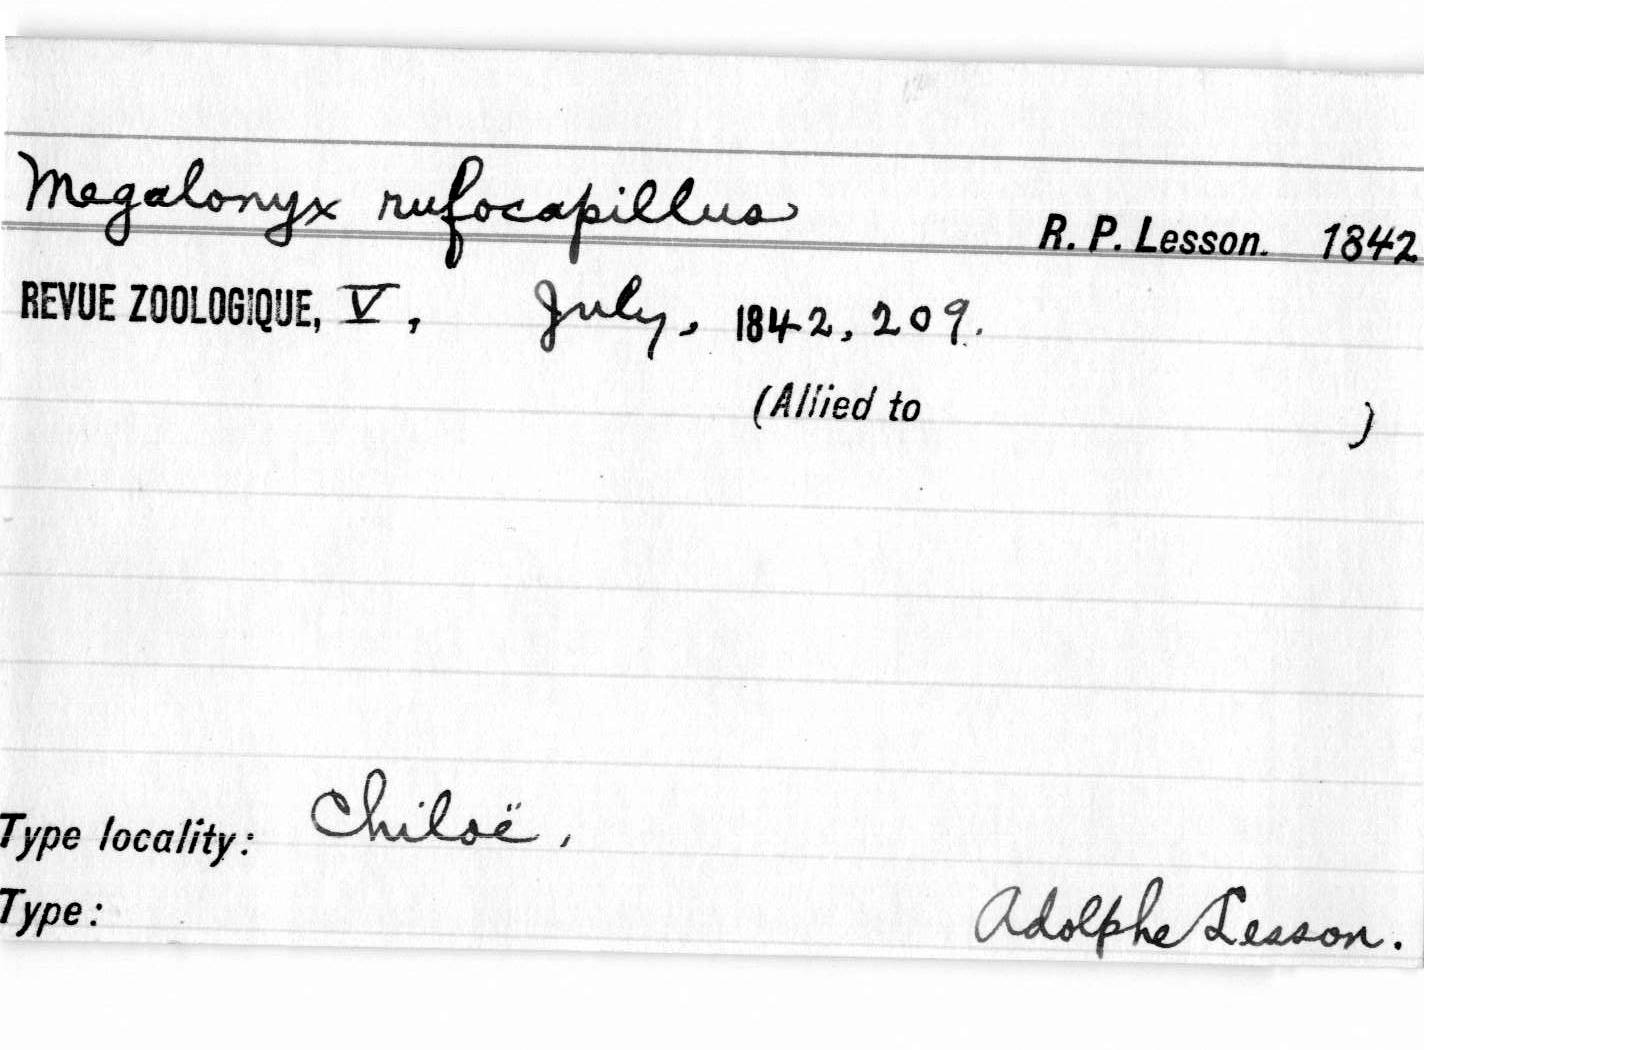 Megalonyx rufocapillus R. P. Lesson. 1842
REVUE ZOOLOGIQUE, V, July, 1842, 209.
(Allied to )
Type locality: Chiloë,
Type: Adolphe Lesson.